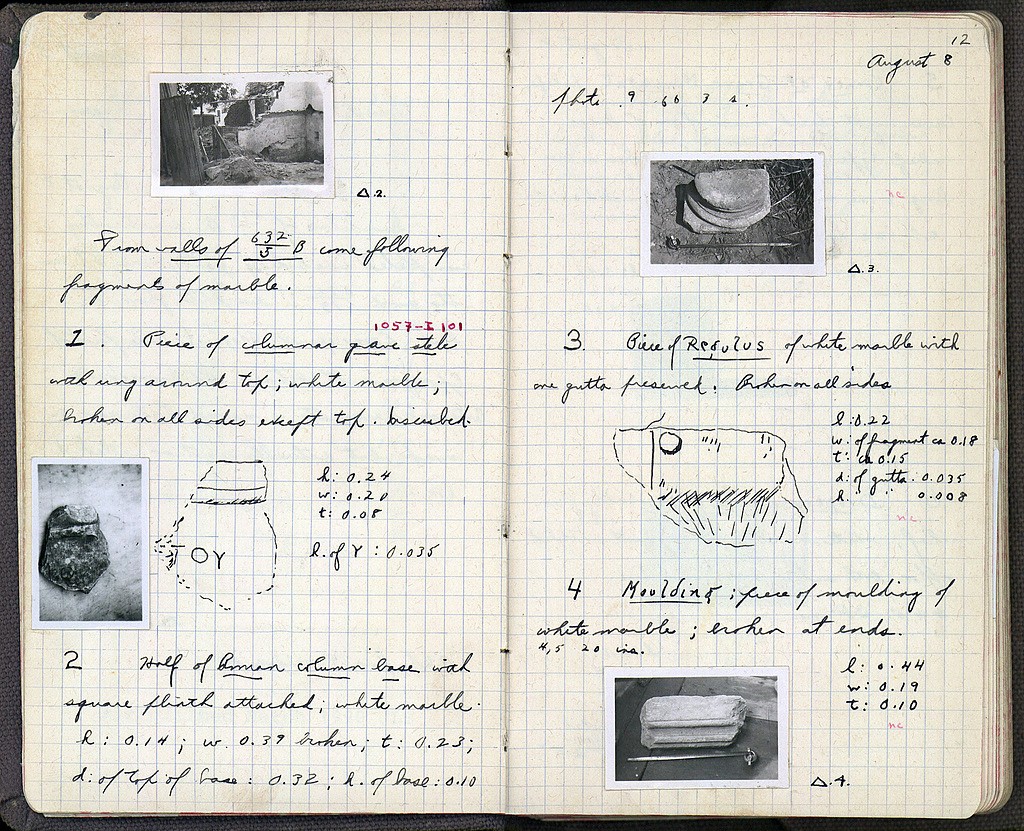 Δ.2.
From walls of 632/5 B come following
fragments of marble.
1057-I 101
1. Piece of columnar grave stele
with ring around top; white marble;
broken on all sides except top. Inscribed.
h: 0.24
w: 0.20
t: 0.08
ΟΥ
h. of Υ: 0.035
2 Half of column base with
square plinth attached; white marble.
h: 0.14; w. 0.39 broken; t: 0.23;
d: of top of base: 0.32; h. of base: 0.10
12
August 8
Photo 9
nc
Δ.3.
3. Piece of Regulus of white marble with
one gutta preserved. Broken on all sides
l: 0.22
w: of fragment ca 0.18
t: ca 0.15
d: of gutta: 0.035
h " " 0.008
nc
4 Moulding; piece of moulding of
white marble; broken at ends.
l: 0.44
w: 0.19
t: 0.10
nc
Δ.4.